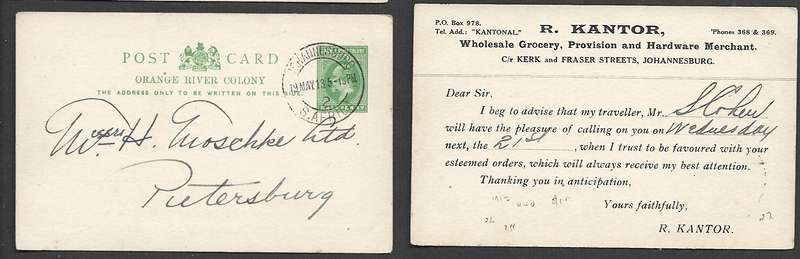 POST CARD
ORANGE RIVER COLONY
THE ADDRESS ONLY TO BE WRITTEN ON THIS SIDE
JOHANNESBURG
19 MAY 13 5-15PM
2
S. AFRICA
Messrs H. Moschke Ltd.
Pietersburg
P.O. Box 978.
Tel. Add.: "KANTONAL."
R. KANTOR,
'Phones 368 & 369.
Wholesale Grocery, Provision and Hardware Merchant.
C/r KERK and FRASER STREETS, JOHANNESBURG.
Dear Sir,
I beg to advise that my traveller, Mr. S Cohen
will have the pleasure of calling on you on Wednesday
next, the 21st, when I trust to be favoured with your
esteemed orders, which will always receive my best attention.
Thanking you in anticipation,
Yours faithfully,
R. KANTOR.